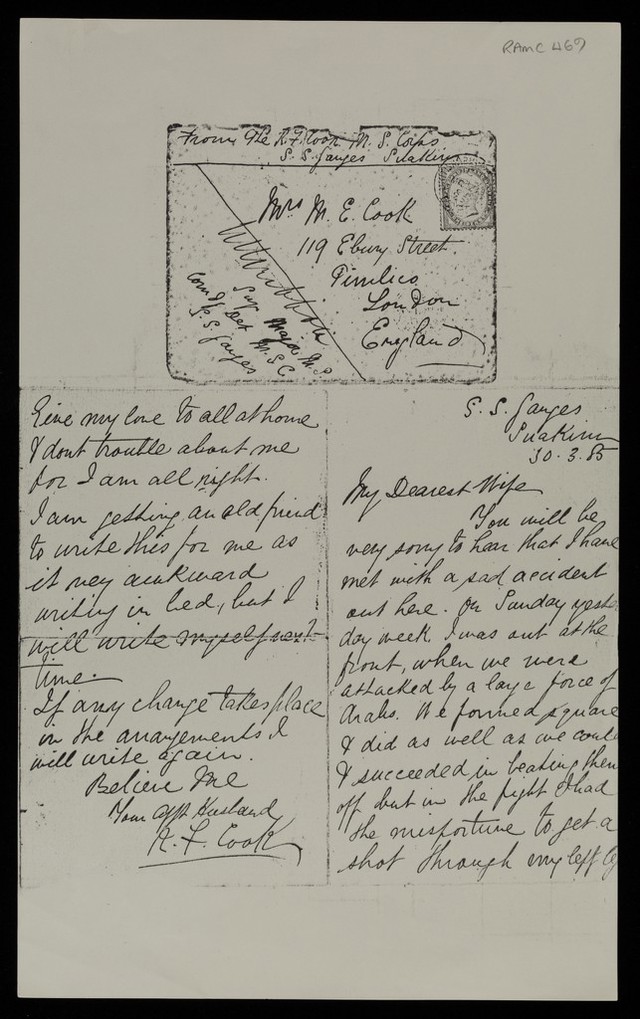 RAMC 469
From Pte R. F. Cook M. S. Corps
S. S. Ganges Suakim
Mrs M. E. Cook
119 Ebury Street
Pimlico
London
England
Surg Major M.S.
Comdg Det M.S.C.
S.S. Ganges
S. S. Ganges
Suakim
30.3.85
My Dearest Wife
You will be
very sorry to hear that I have
met with a sad accident
out here. On Sunday yester
day week I was out at the
front, when we were
attacked by a large force of
Arabs. We formed square
& did as well as we could
& succeeded in beating them
off but in the fight I had
the misfortune to get a
shot through my left leg
Give my love to all at home
& dont trouble about me
for I am all right.
I am getting an old friend
to write this for me as
it very awkward
writing in bed, but I
will write myself next
time.
If any change takes place
in the arrangements I
will write again.
Believe Me
Your afft Husband
R. F. Cook